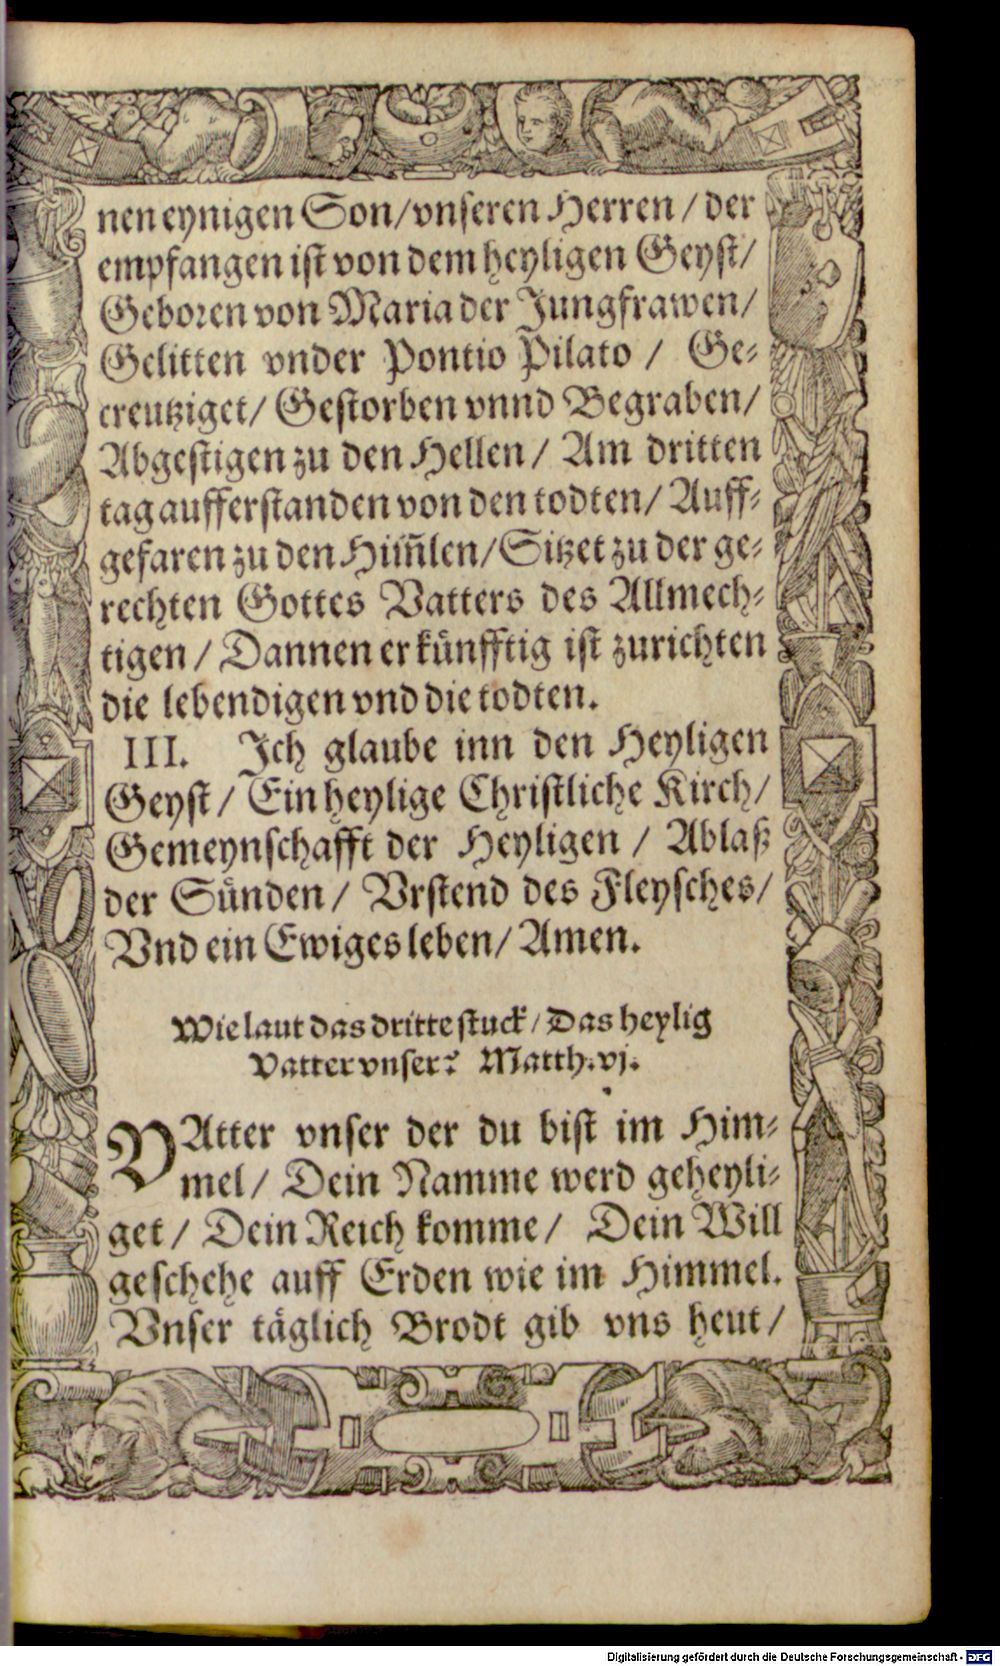 nen eynigen Son/ vnseren Herren / der
empfangen ist von dem heyligen Geyst/
Geboren von Maria der Jungfrawen/
Gelitten vnder Pontio Pilato / Ge⸗
creutziget/ Gestorben vnnd Begraben/
Abgestigen zu den Hellen / Am dritten
tag aufferstanden von den todten/ Auff⸗
gefaren zu den Him̃len/ Sitzet zu der ge⸗
rechten Gottes Vatters des Allmech⸗
tigen / Dannen er kuͤnfftig ist zurichten
die lebendigen vnd die todten.
III. Ich glaube inn den Heyligen
Geyst/ Ein heylige Christliche Kirch/
Gemeynschafft der Heyligen / Ablaß
der Suͤnden/ Vrstend des Fleysches/
Vnd ein Ewiges leben/ Amen.
Wie laut das dritte stuck/ Das heylig
Vatter vnser? Matth. vj.
VAtter vnser der du bist im Him⸗
mel/ Dein Namme werd geheyli⸗
get / Dein Reich komme/ Dein Will
geschehe auff Erden wie im Himmel.
Vnser taͤglich Brodt gib vns heut/
Digitalisierung gefördert durch die Deutsche Forschungsgemeinschaft - DFG